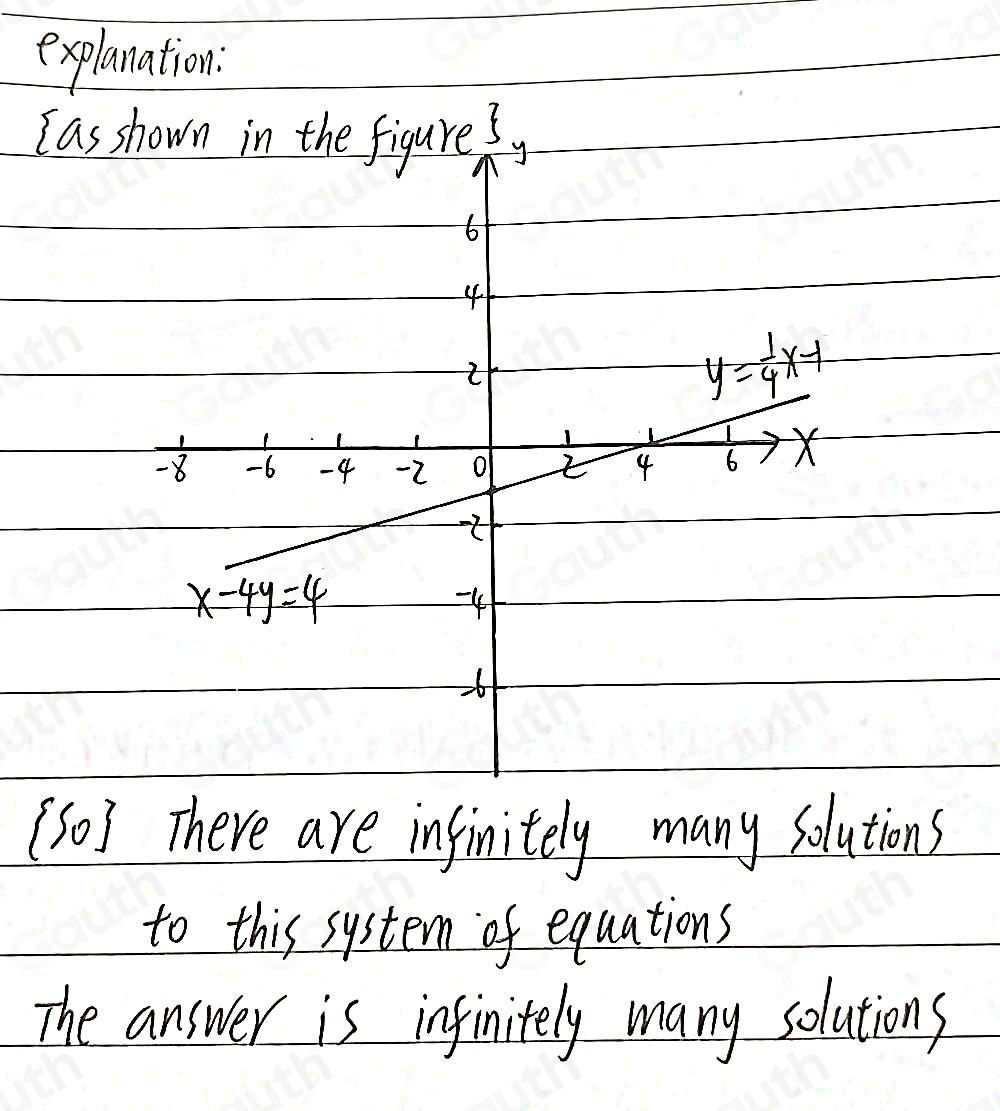 explanation:
{as shown in the figure}
y
6
4
2
y=\frac{1}{4}x-1
-8 -6 -4 -2 0 2 4 6 X
-2
x-4y=4
-4
-6
{So} There are infinitely many solutions
to this system of equations
The answer is infinitely many solutions
Gauth